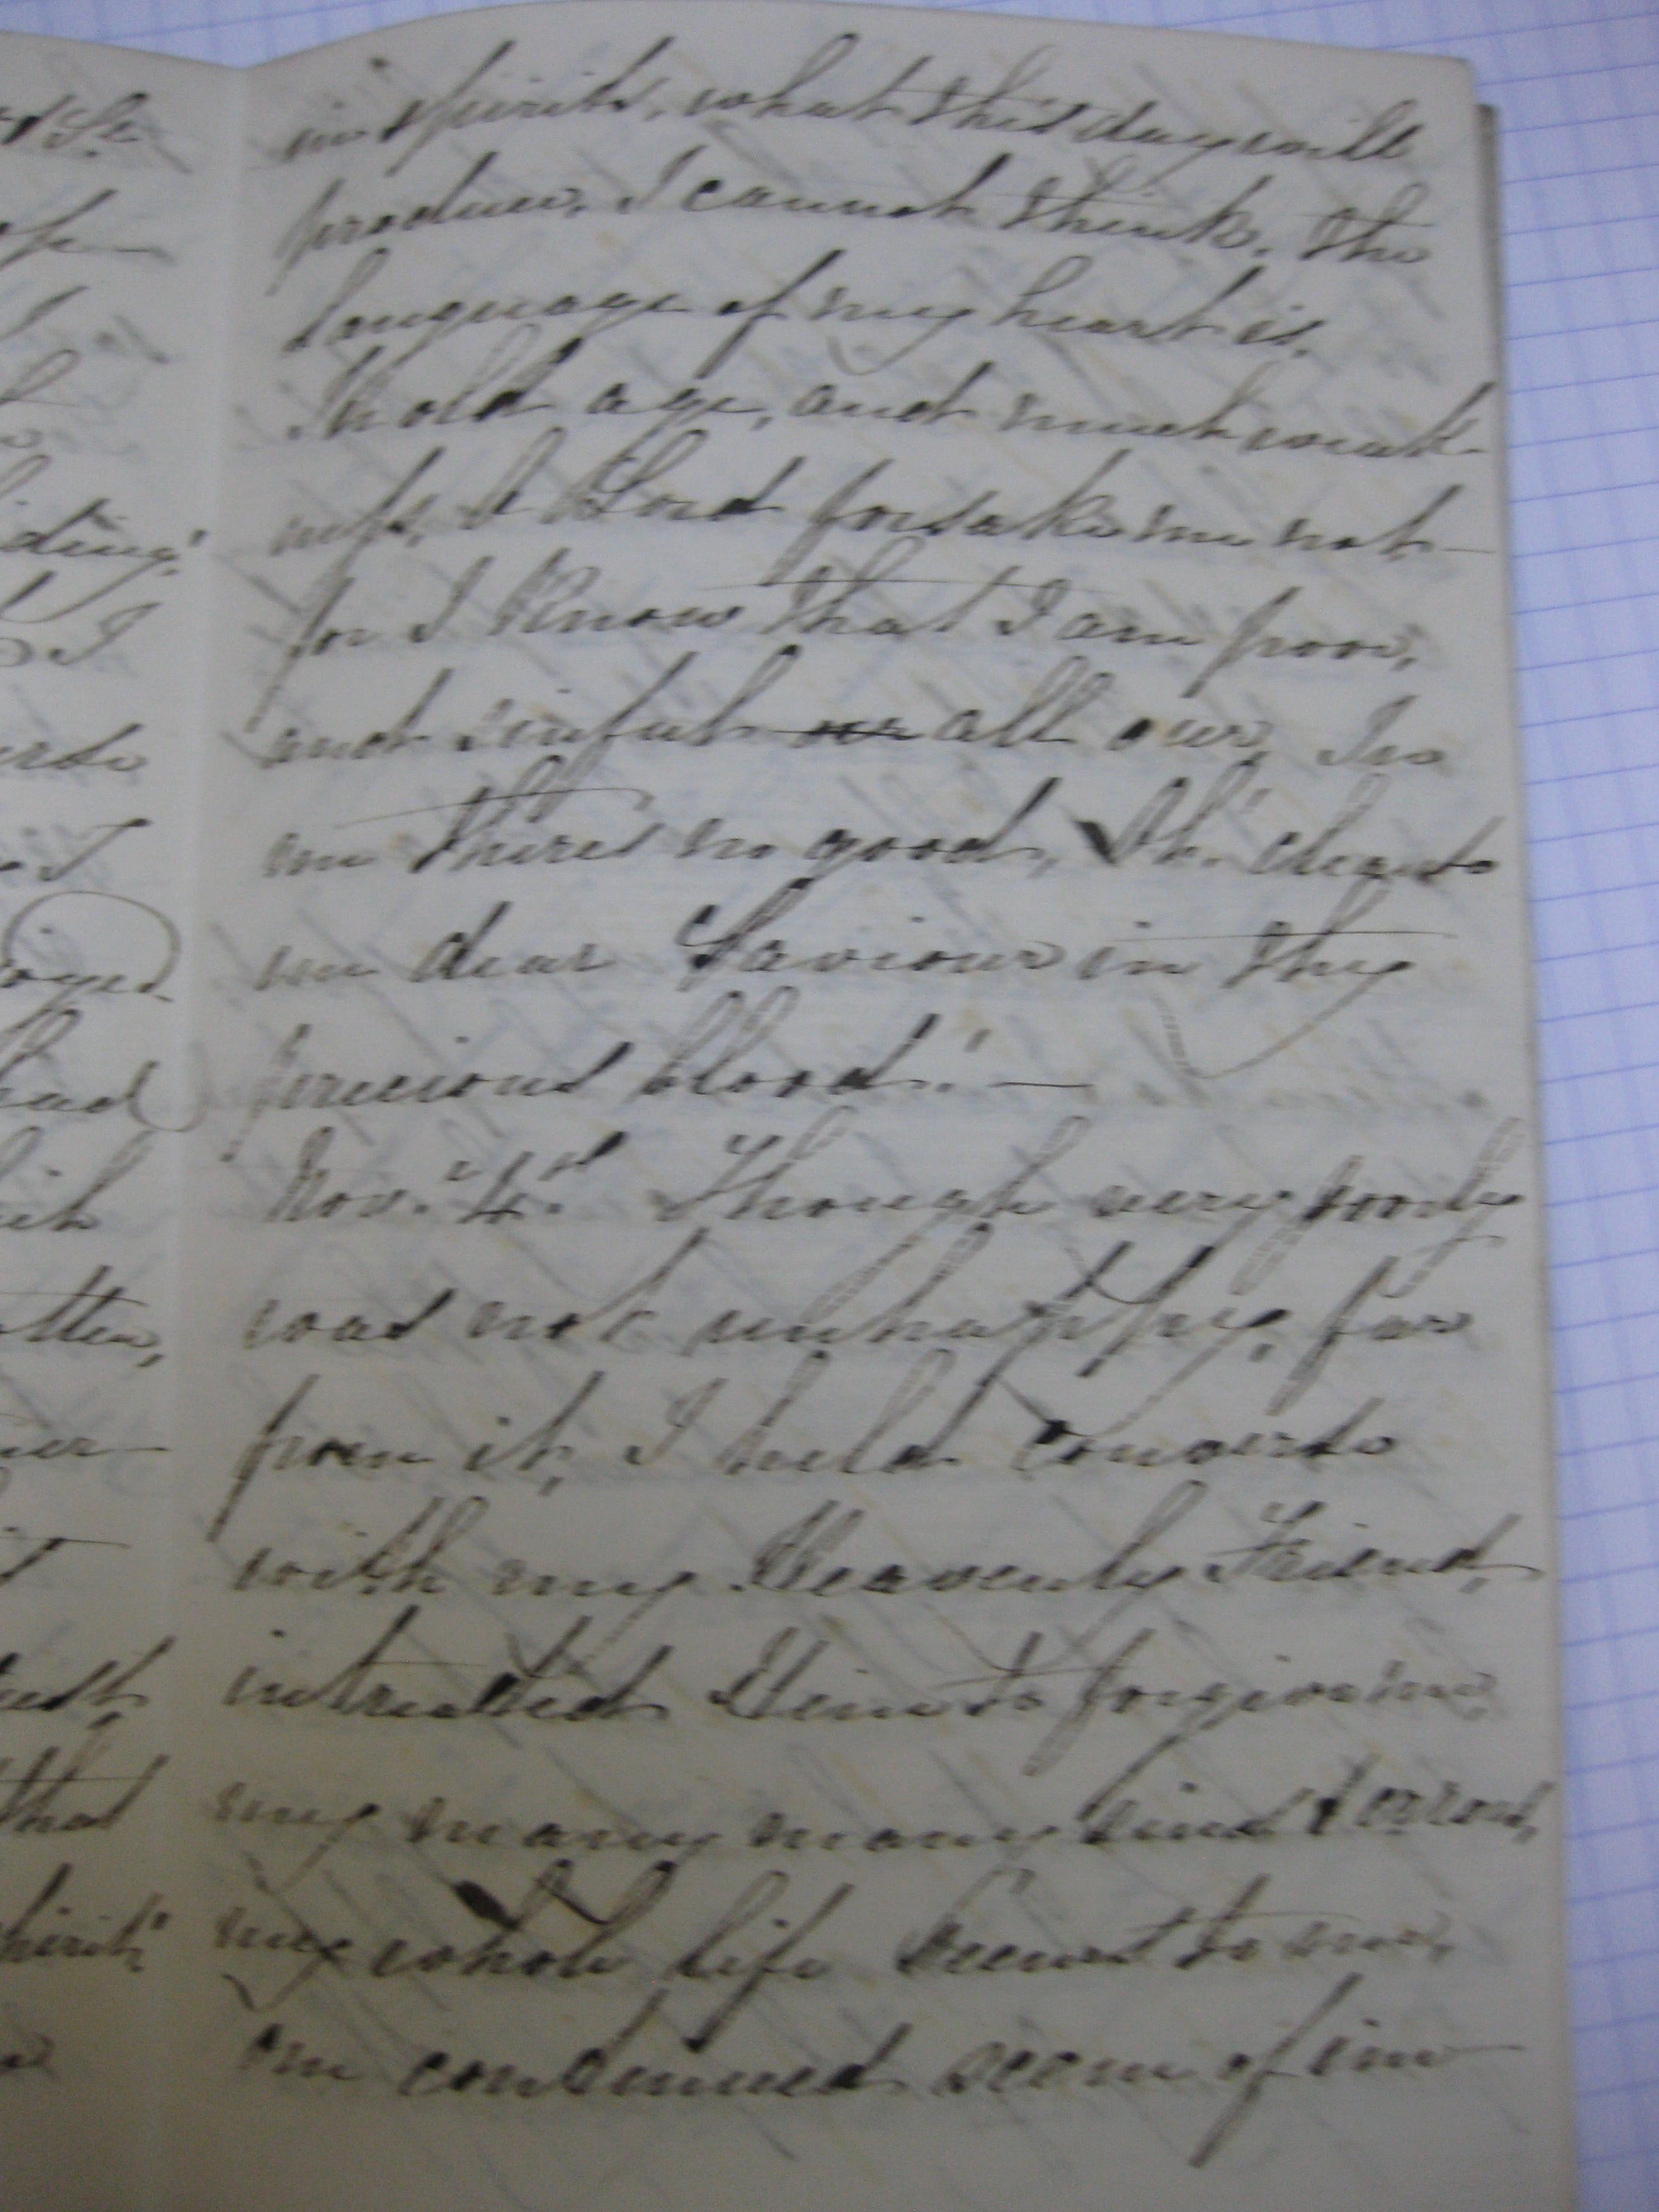 in spirits, what this day will
produce, I cannot think. The
language of my heart is,
In old age, and much weak-
ness, O Lord forsake me not—
for I know that I am poor,
and sinful all over, In
me theres no good, Oh! cleanse
me dear Saviour in thy
precious blood!—
Nov. 4. Though very poorly
was not unhappy, far
from it, I held converse
with my Heavenly Friend,
intreated Him to forgive me
my many many sins & errors,
my whole life seemed to me,
one continued scene of im-
ding!
I
had
that